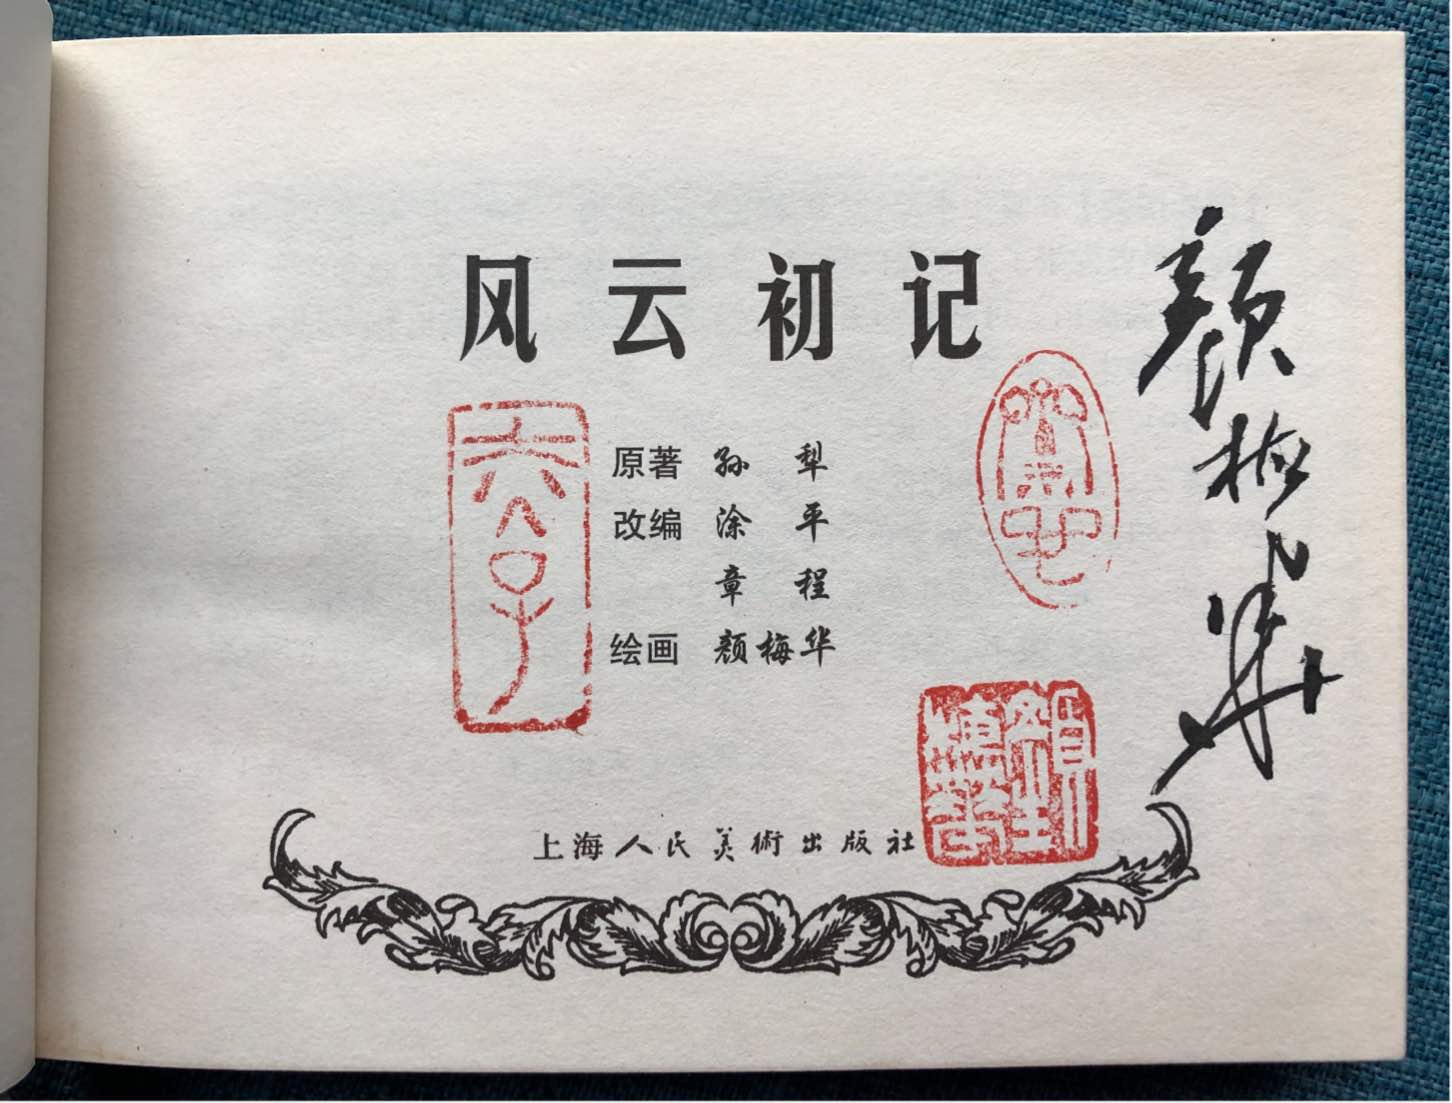 风云初记
原著 孙犁
改编 涂平
章程
绘画 颜梅华
上海人民美術出版社
颜梅华